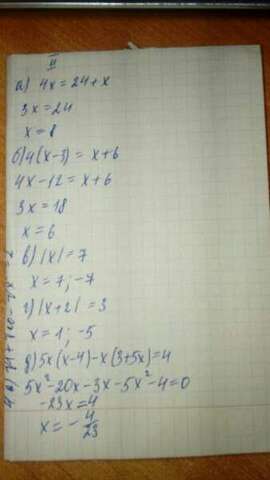 II
а) 4x = 24 + x
3x = 24
x = 8
б) 4(x-3) = x+6
4x - 12 = x+6
3x = 18
x = 6
в) |x| = 7
x = 7; -7
г) |x+2| = 3
x = 1; -5
д) 5x(x-4) - x(3+5x) = 4
5x² - 20x - 3x - 5x² - 4 = 0
-23x = 4
x = - 4/23